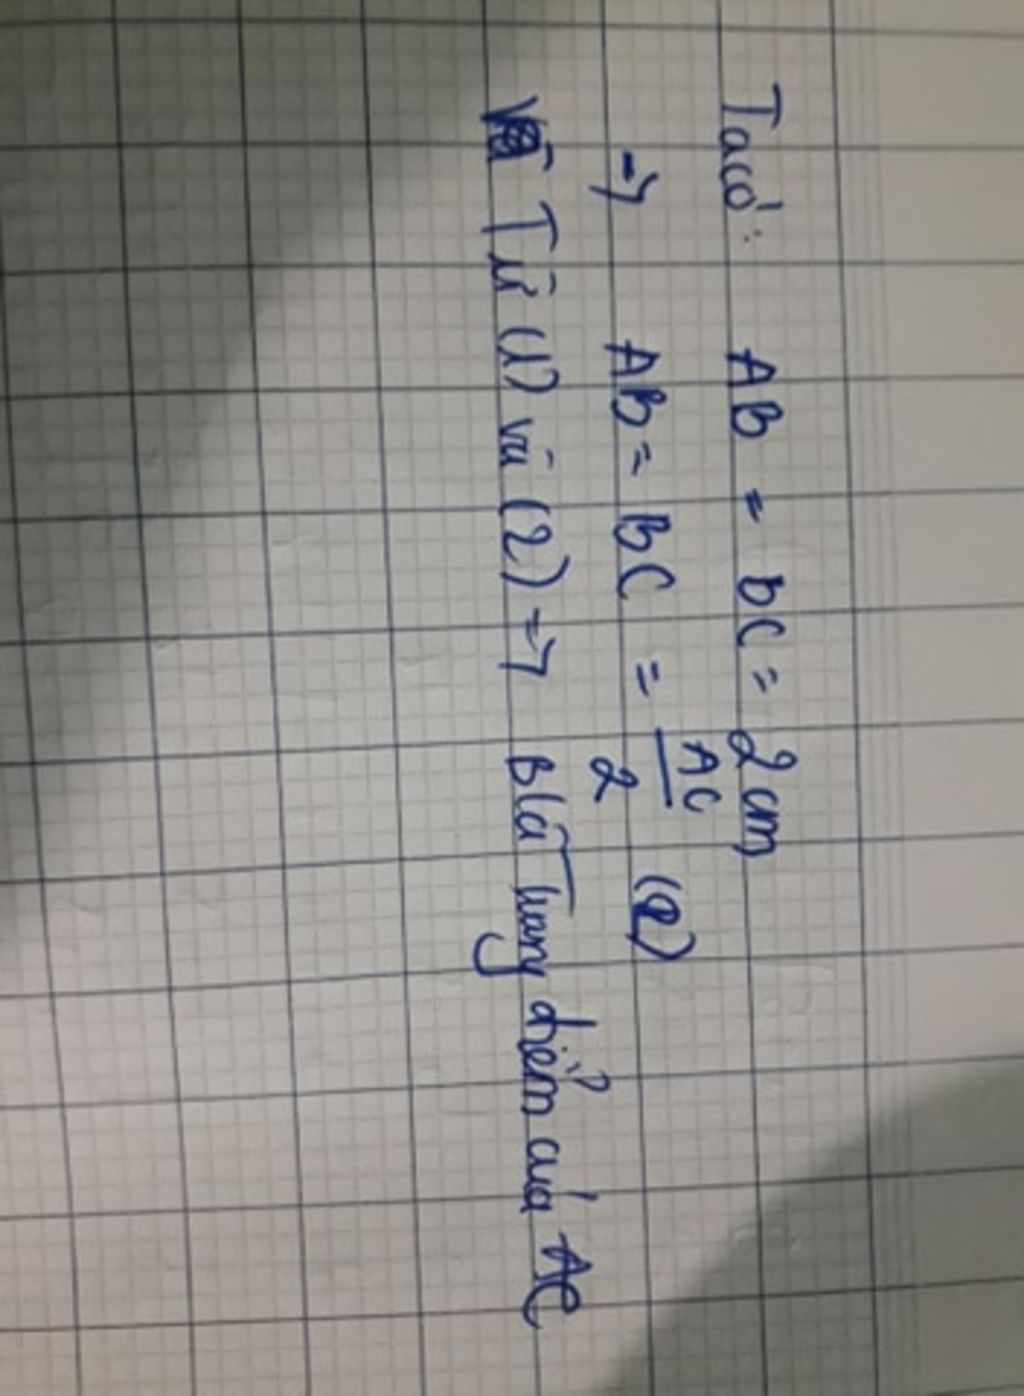 Ta có: AB = BC = 2cm
=> AB = BC = AC/2 (2)
Từ (1) và (2) => B là trung điểm của AC